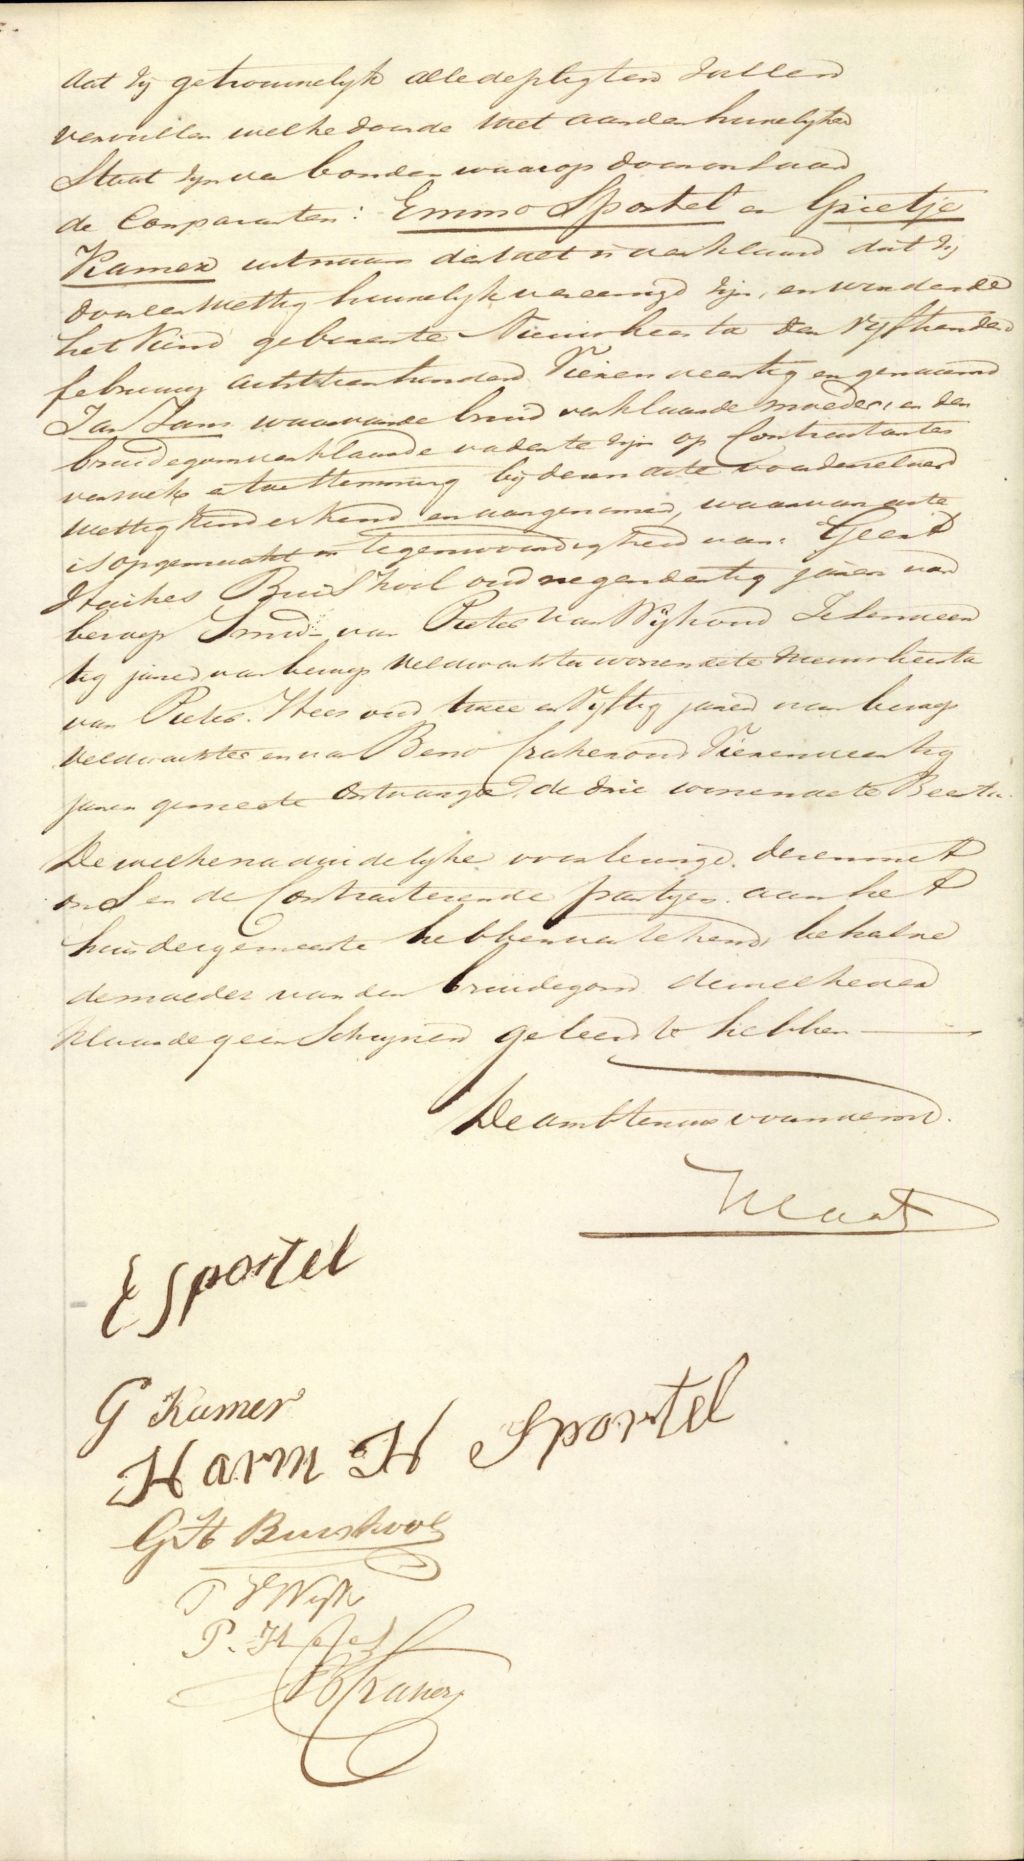 dat zij getrouwelijk alle de pligten zullen
vervullen welke door de Wet aan den huwelijken
Staat zijn verbonden waarop door ons aan
de Comparanten: Emmo Sportel en Grietje
Kamer uit naam der wet is verklaard dat zij
door een Wettig huwelijk vereenigd zijn, en werdende
het kind geboren te Nieuw beerta den vijftienden
februarij achttienhonderd Vierenveertig en genaamd
Jan waarvan de bruid verklaarde moeder, en den
bruidegom verklaarde vader te zijn op Contractanten
verzoek en toestemming bij deren acte voor derzelver
wettig kind erkend en aangenomen, waarvan acte
is opgemaakt in tegenwoordigheid van: Geert
Huikes Buiskool oud negendertig jaren van
beroep Smid van Pieter van Wijk oud Zesenveer
tig jaren van beroep Veldwachter wonende te Nieuw beerta
van Pieter Hees oud twee en Vijftig jaren van beroep
Veldwachter en van Beno oud Vierenveertig
jaren gemeente Ontvanger, de drie wonende te Beerta.
De welke na duidelijke voorlezing. dezen met
ons en de Contracterende partijen aan het
huis der gemeente hebben getekend, behalve
de moeder van den bruidegom dewelke ver
klaarde geen Schrijven geleerd te hebben
De ambtenaar voornoemd.
E Sportel
G Kamer
Harm H Sportel
G H Buiskool
P V Wijk
P. Hees